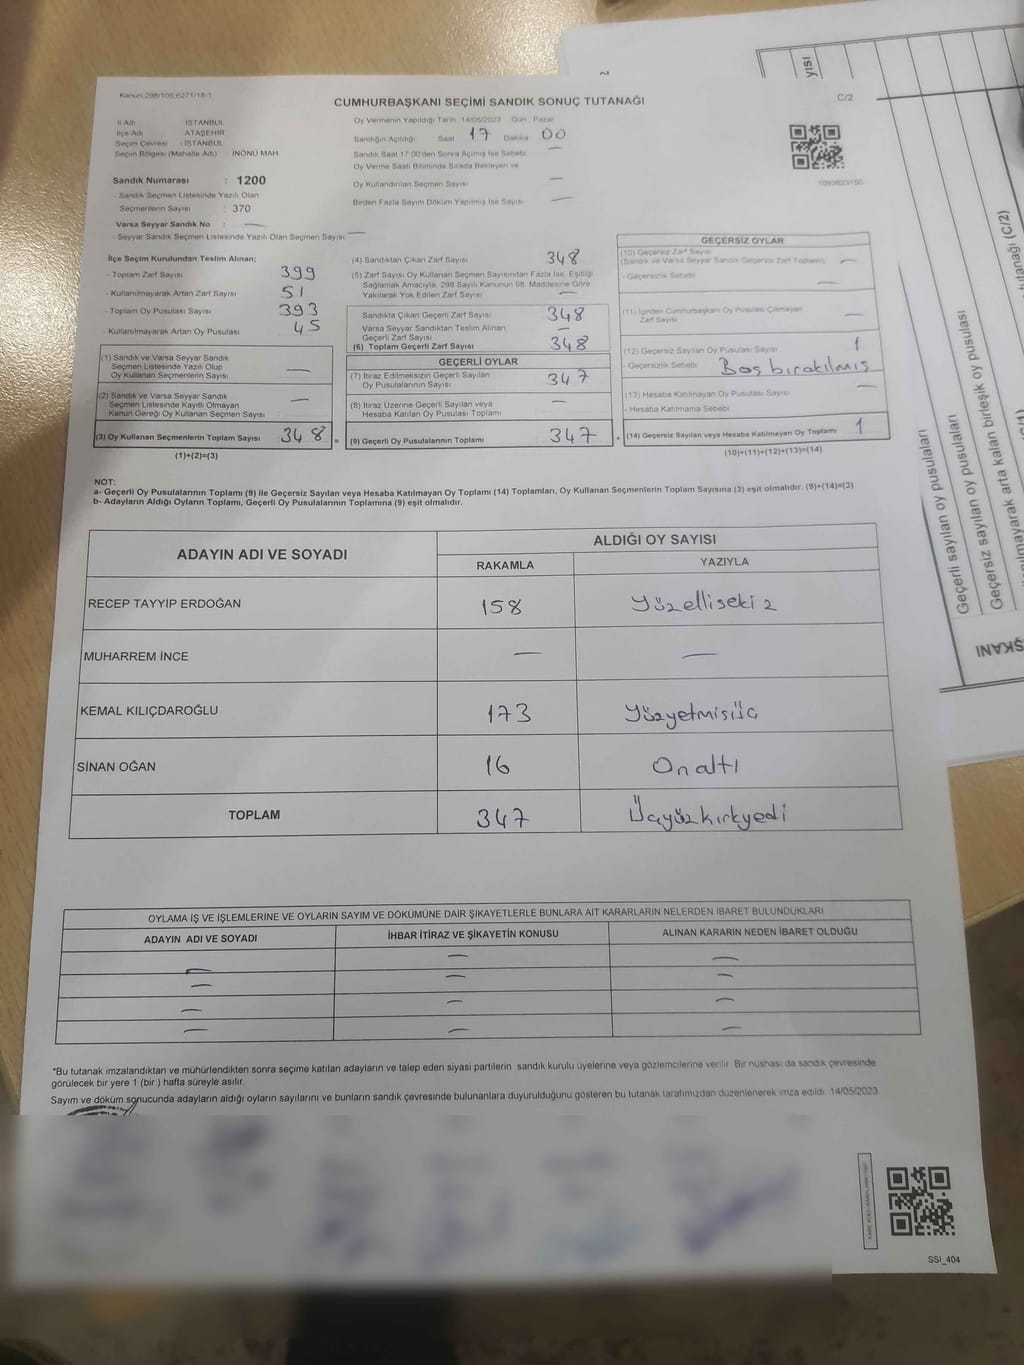 Kanun:298/105,6271/18-1
CUMHURBAŞKANI SEÇİMİ SANDIK SONUÇ TUTANAĞI
C/2
İl Adı : İSTANBUL
İlçe Adı : ATAŞEHİR
Seçim Çevresi : İSTANBUL
Seçim Bölgesi (Mahalle Adı) : İNÖNÜ MAH.
Oy Vermenin Yapıldığı Tarih : 14/05/2023 Gün : Pazar
Sandığın Açıldığı Saat 17 Dakika 00
Sandık Saat 17:00'den Sonra Açılmış İse Sebebi —
Oy Verme Saati Bitiminde Sırada Bekleyen ve
Oy Kullandırılan Seçmen Sayısı —
Birden Fazla Sayım Döküm Yapılmış İse Sayısı —
Sandık Numarası : 1200
- Sandık Seçmen Listesinde Yazılı Olan
Seçmenlerin Sayısı : 370
Varsa Seyyar Sandık No : —
- Seyyar Sandık Seçmen Listesinde Yazılı Olan Seçmen Sayısı: —
İlçe Seçim Kurulundan Teslim Alınan;
- Toplam Zarf Sayısı 399
- Kullanılmayarak Artan Zarf Sayısı 51
- Toplam Oy Pusulası Sayısı 393
- Kullanılmayarak Artan Oy Pusulası 45
(1) Sandık ve Varsa Seyyar Sandık
Seçmen Listesinde Yazılı Olup
Oy Kullanan Seçmenlerin Sayısı —
(2) Sandık ve Varsa Seyyar Sandık
Seçmen Listesinde Kayıtlı Olmayan
Kanun Gereği Oy Kullanan Seçmen Sayısı —
(3) Oy Kullanan Seçmenlerin Toplam Sayısı 348 =
(1)+(2)=(3)
(4) Sandıktan Çıkan Zarf Sayısı 348
(5) Zarf Sayısı Oy Kullanan Seçmen Sayısından Fazla İse, Eşitliği
Sağlamak Amacıyla, 298 Sayılı Kanunun 98. Maddesine Göre
Yakılarak Yok Edilen Zarf Sayısı —
Sandıkta Çıkan Geçerli Zarf Sayısı 348
Varsa Seyyar Sandıktan Teslim Alınan
Geçerli Zarf Sayısı —
(6) Toplam Geçerli Zarf Sayısı 348
GEÇERLİ OYLAR
(7) İtiraz Edilmeksizin Geçerli Sayılan
Oy Pusulalarının Sayısı 347
(8) İtiraz Üzerine Geçerli Sayılan veya
Hesaba Katılan Oy Pusulası Toplamı —
(9) Geçerli Oy Pusulalarının Toplamı 347 +
GEÇERSİZ OYLAR
(10) Geçersiz Zarf Sayısı
(Sandık ve Varsa Seyyar Sandık Geçersiz Zarf Toplamı) —
- Geçersizlik Sebebi —
(11) İçinden Cumhurbaşkanı Oy Pusulası Çıkmayan
Zarf Sayısı —
(12) Geçersiz Sayılan Oy Pusulası Sayısı 1
- Geçersizlik Sebebi Boş bırakılmış
(13) Hesaba Katılmayan Oy Pusulası Sayısı —
- Hesaba Katılmama Sebebi
(14) Geçersiz Sayılan veya Hesaba Katılmayan Oy Toplamı 1
(10)+(11)+(12)+(13)=(14)
NOT:
a- Geçerli Oy Pusulalarının Toplamı (9) ile Geçersiz Sayılan veya Hesaba Katılmayan Oy Toplamı (14) Toplamları, Oy Kullanan Seçmenlerin Toplam Sayısına (3) eşit olmalıdır. (9)+(14)=(3)
b- Adayların Aldığı Oyların Toplamı, Geçerli Oy Pusulalarının Toplamına (9) eşit olmalıdır.
ADAYIN ADI VE SOYADI
ALDIĞI OY SAYISI
RAKAMLA YAZIYLA
RECEP TAYYİP ERDOĞAN 158 Yüzellisekiz
MUHARREM İNCE — —
KEMAL KILIÇDAROĞLU 173 Yüzyetmişüç
SİNAN OĞAN 16 Onaltı
TOPLAM 347 Üçyüzkırkyedi
OYLAMA İŞ VE İŞLEMLERİNE VE OYLARIN SAYIM VE DÖKÜMÜNE DAİR ŞİKAYETLERLE BUNLARA AİT KARARLARIN NELERDEN İBARET BULUNDUKLARI
ADAYIN ADI VE SOYADI İHBAR İTİRAZ VE ŞİKAYETİN KONUSU ALINAN KARARIN NEDEN İBARET OLDUĞU
— — —
— — —
— — —
— — —
*Bu tutanak imzalandıktan ve mühürlendikten sonra seçime katılan adayların ve talep eden siyasi partilerin sandık kurulu üyelerine veya gözlemcilerine verilir. Bir nüshası da sandık çevresinde
görülecek bir yere 1 (bir ) hafta süreyle asılır.
Sayım ve döküm sonucunda adayların aldığı oyların sayılarını ve bunların sandık çevresinde bulunanlara duyurulduğunu gösteren bu tutanak tarafımızdan düzenlenerek imza edildi. 14/05/2023
SSI_404
Geçerli sayılan oy pusulaları
Geçersiz sayılan oy pusulaları
arta kalan birleşik oy pusulası
tutanağı (C/2)